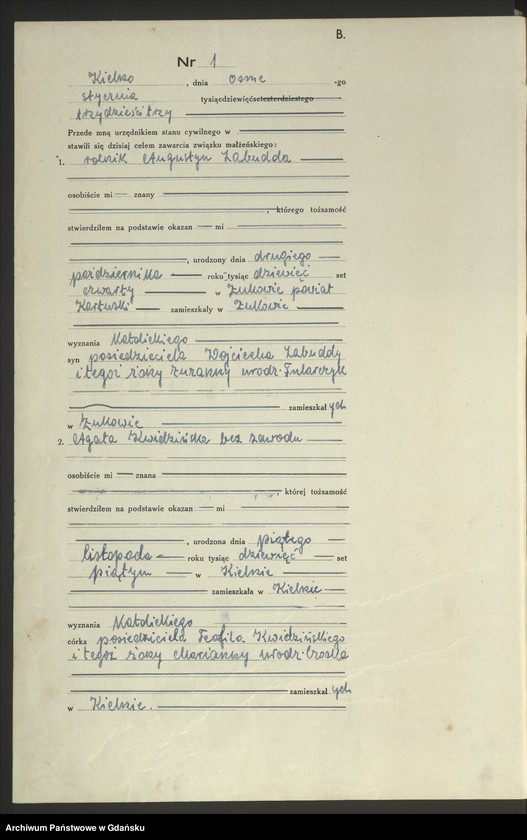 B.
Nr 1
Kielno, dnia osme -go
stycznia tysiącdziewięćsetczterdziestego
trzydzieści trzy
Przede mną urzędnikiem stanu cywilnego w
stawili się dzisiaj celem zawarcia związku małżeńskiego:
1. rolnik Augustyn Labudda
osobiście mi znany
, którego tożsamość
stwierdziłem na podstawie okazan mi
, urodzony dnia drugiego
października roku tysiąc dziewięć set
czwarty w Żukowie powiat
Kartuski zamieszkały w Żukowie
wyznania Katolickiego
syn posiedziciela Wojciecha Labuddy
i tegoż żony Zuzanny urodz.
zamieszkał ych
w Żukowie
2. Agata Kwidzińska bez zawodu
osobiście mi znana
, której tożsamość
stwierdziłem na podstawie okazan mi
, urodzona dnia piątego
listopada roku tysiąc dziewięć set
piątym w Kielnie
zamieszkała w Kielnie
wyznania Katolickiego
córka posiedziciela Teofila Kwidzińskiego
i tegoż żony Marianny urodz.
zamieszkał ych
w Kielnie.
Archiwum Państwowe w Gdańsku